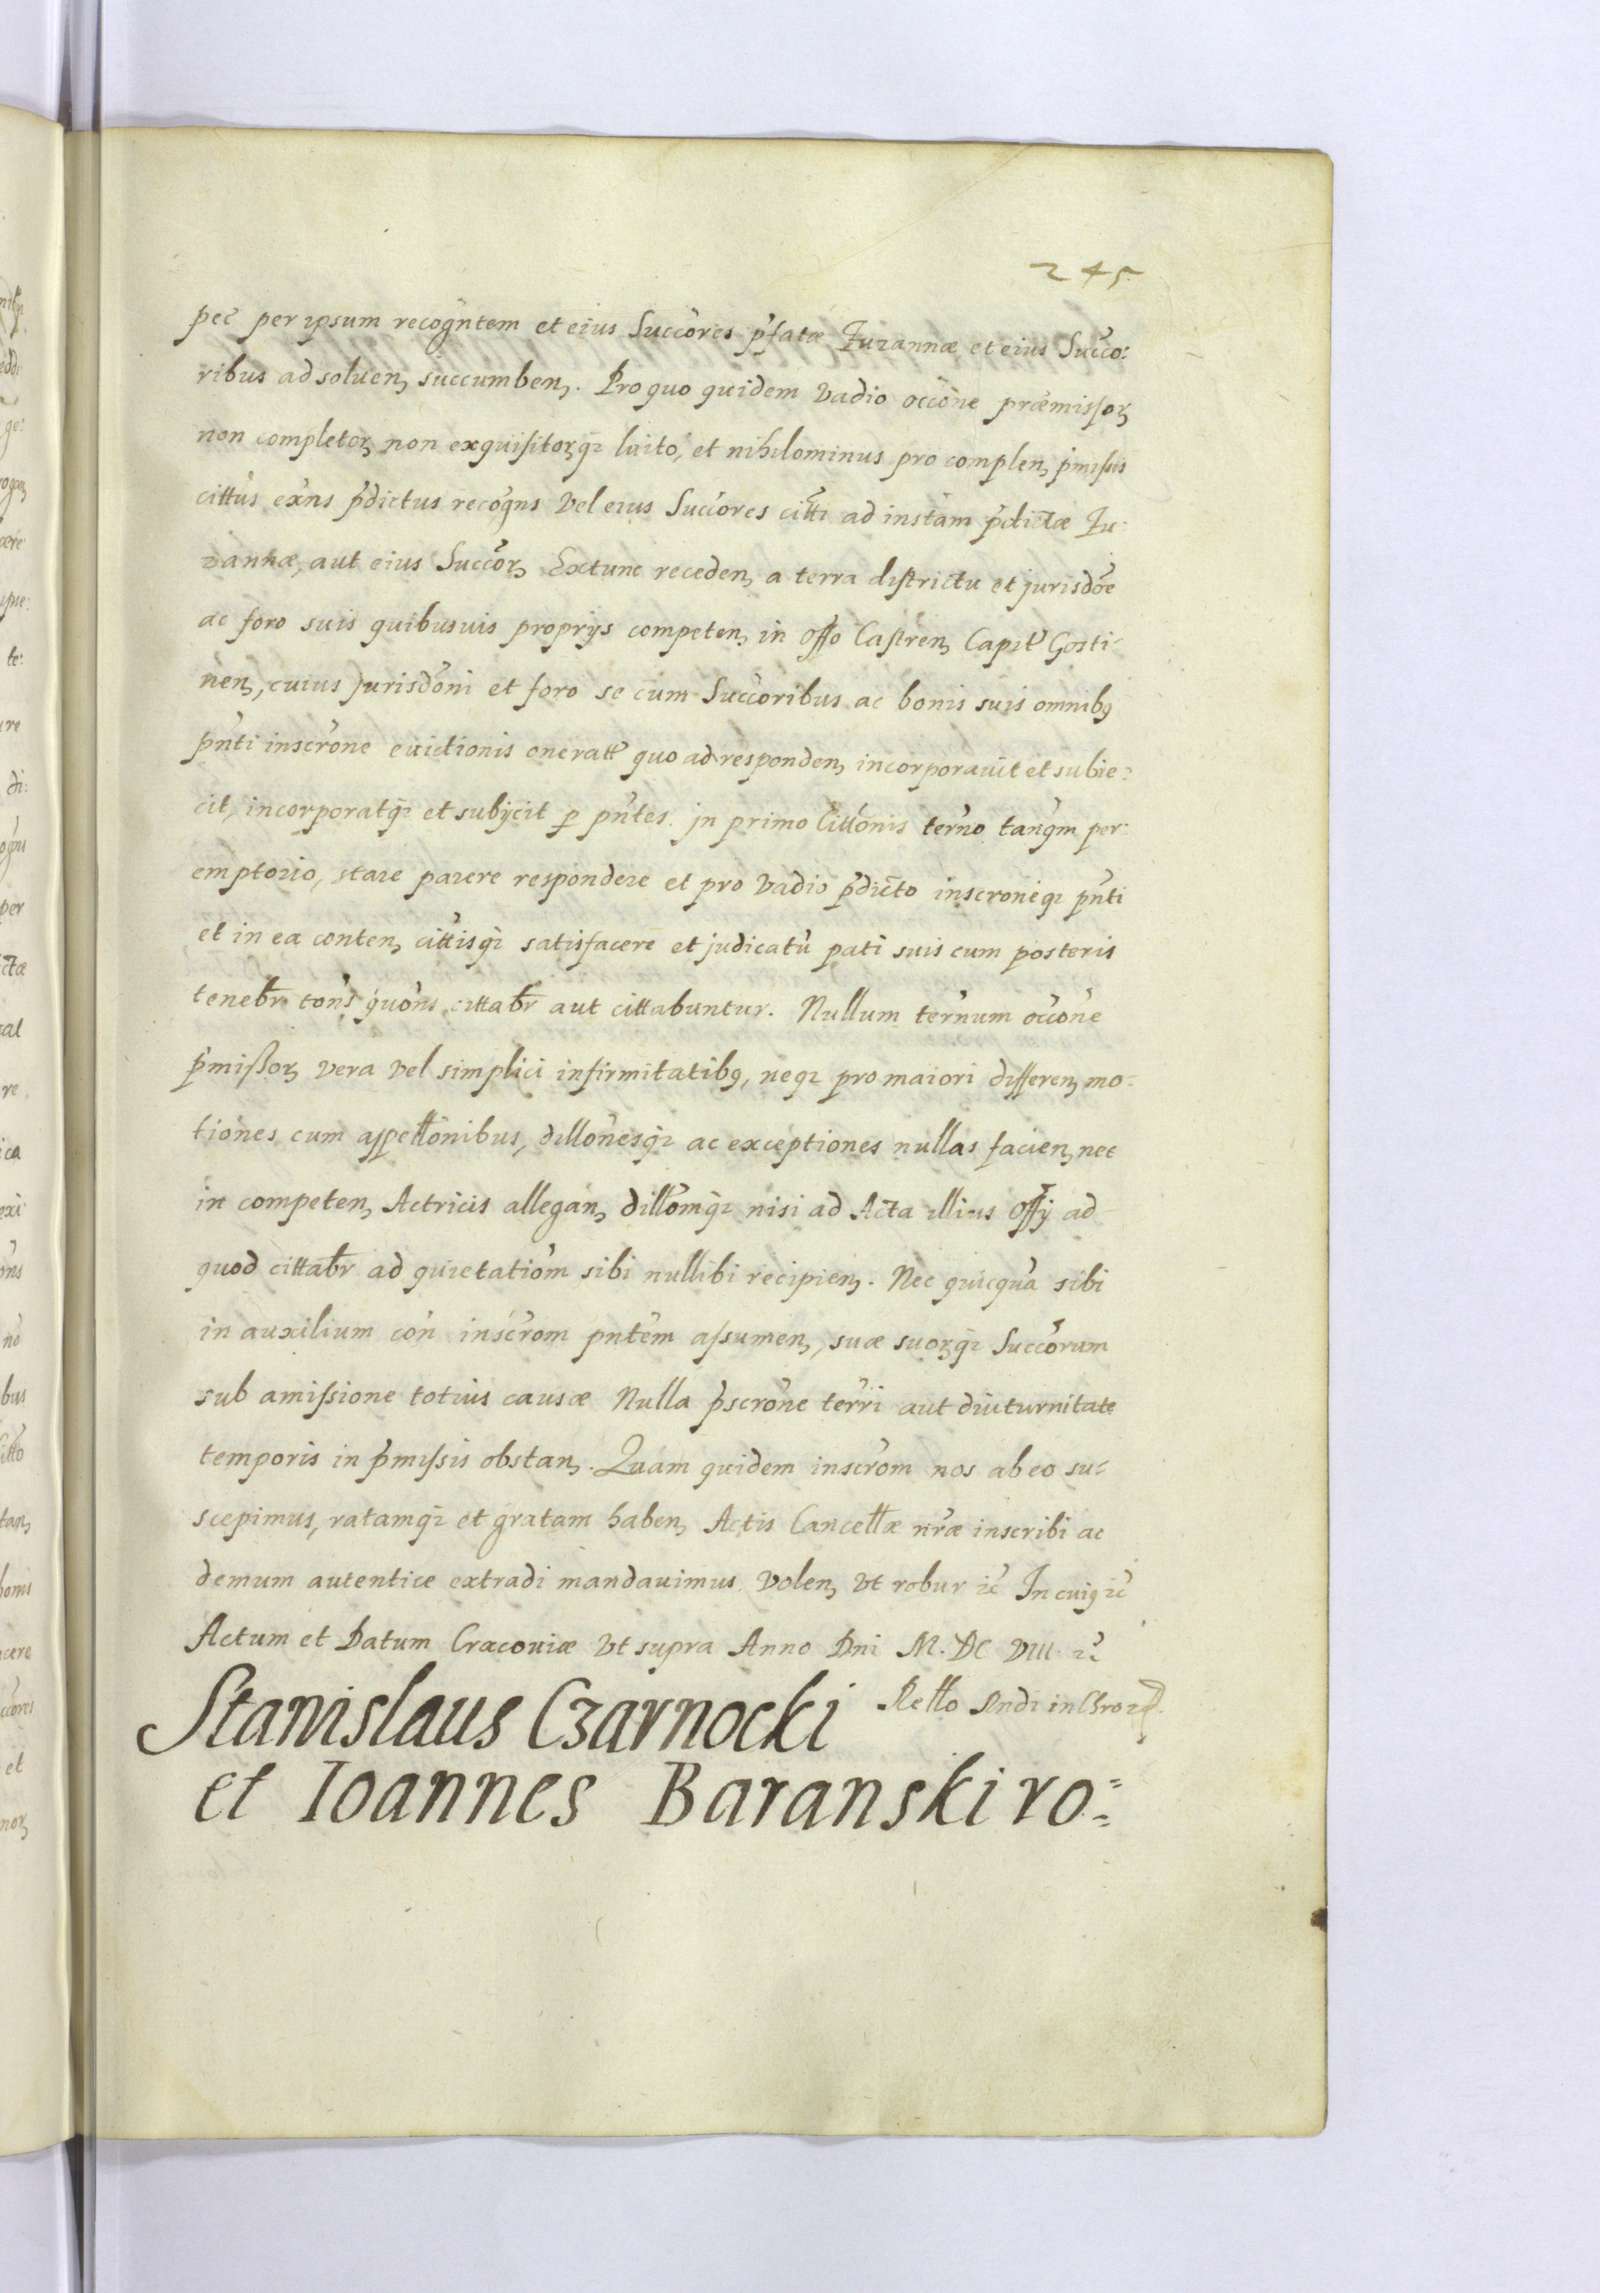 245.
pec̃ per ipsum recogñtem et eius Succ̃ores p̃fatæ Zuzannæ et eius Succ̃o:
ribus ad soluenȝ succumbenȝ. Pro quo quidem Vadio occ̃one præmissoꝝ
non completoꝝ non exquisitoꝝqꝫ luito, et nihilominus pro complenȝ p̃missis
cittũs exñs p̃dictus recogñs Vel eius Succ̃ores citt̃i ad instãm p̃dictæ Zu:
zannæ, aut eius Succ̃oꝝ Extunc recedenȝ a terra districtu et jurisdõe
ac foro suis quibusuis proprijs competenȝ in Offo Castrenȝ Capit̃ Gosti-
nenȝ, cuius Jurisdõni et foro se cum Succ̃oribus ac bonis suis omnibꝯ
pñti inscr̃one euictionis oneratt̃ quo ad respondenȝ incorporauit et subie:
cit, incorporatqꝫ et subijcit ꝑ pñtes. jn primo Citt̃onis ter̃no tanq̃m per:
emptorio, stare parere respondere et pro Vadio p̃dicto inscroneqꝫ pñti
et in ea contenȝ cittisqꝫ satisfacere et judicatũ pati suis cum posteris
teneb̃r tõns quõns cittab̃r aut cittabuntur. Nullum ter̃num occ̃one
p̃mißoꝝ vera vel simplici infirmitatibꝯ, neqꝫ pro maiori differenȝ mo-
tiones cum appell̃onibus, dill̃onesqꝫ ac exceptiones nullas facienȝ nec
in competenȝ Actricis alleganȝ dill̃omqꝫ nisi ad Acta illius Offĩj ad
quod cittab̃r ad quietatiõm sibi nullibi recipienȝ. Nec quicquã sibi
in auxilium coñ inscr̃om pñtem assumenȝ, suæ suoꝝqꝫ Succ̃orum
sub amissione totius causæ Nulla p̃scrõne ter̃ri aut diuturnitate
temporis in p̃missis obstanȝ. Quam quidem inscr̃om nos ab eo su-
scepimus, ratamqꝫ et gratam habenȝ Actis Cancell̃æ nr̃æ inscribi ac
demum autentice extradi mandauimus. Volenȝ Vt robur ꝛc̃ In cuiꝯ ꝛc̃
Actum et Datum Cracouiæ Vt supra Anno Dni M. DC VIII. ꝛc̃
Rel̃lo
Stanislaus Czarnocki
et Ioannes Baranski ro: